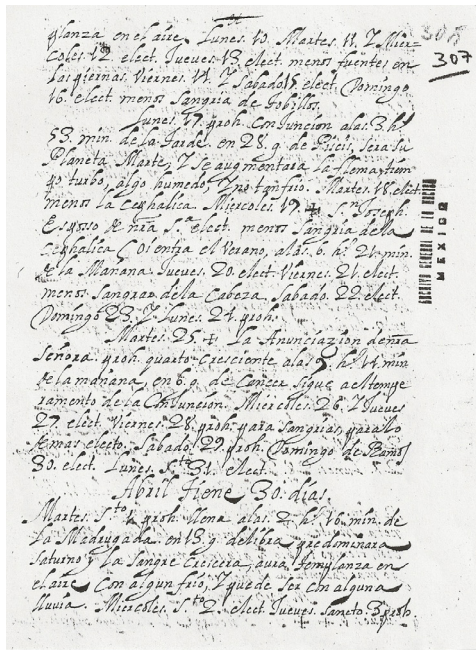 307
307
ARCHIVO GENERAL DE LA NACION
MEXICO
en el aire. Lunes. 10. Martes. 11. Y Mier-
coles. 12. elect. Jueves. 13. elect. menos fuentes en
las piernas. Viernes. 14. Y Sabado 15. elect. Domingo
16. elect. menos Sangria de Tobillos.
Lunes. 17. proh. Conjuncion a las. 3. hs.
53. min. de la Tarde. en 28. g. de Piscis, sera su
Planeta, Marte, Y se augmentara la flema, tiem
po turbo, algo humedo, Y no tan frio. Martes. 18. elect
menos la Cephalica. Miercoles. 19. + Sn. Joseph.
Esposo de nra Sa. elect. menos Sangria de la
Cephalica. Oi entra el Verano, a las. 6. hs. 21. min.
de la Mañana. Jueves. 20. elect. Viernes. 21. elect.
menos Sangrar de la Cabeza. Sabado. 22. elect.
Domingo 23. Y Lunes. 24. proh.
Martes. 25. + La Anunciazion de nra
Señora. proh. quarto Cresciente a las hs. 14. min
de la mañana, en 6. g. de Cancer. Sigue a el tempe
ramento de la Conjuncion. Miercoles. 26. Y Jueves
27. elect. Viernes. 28. proh. para Sangrias, para lo
demas electo. Sabado. 29. proh. Domingo de Ramos
30. elect. Lunes. Sto. 31. elect.
Abril tiene 30. dias.
Martes. Sto. 1. proh. llena a las. 2. hs. 16. min. de
la Madrugada. en 13. g. de libra, predominara
Saturno y la Sangre Crescera, aura templanza en
el aire Con algun frio, Y puede ser Con alguna
lluvia. Miercoles. Sto. 2. elect. Jueves. Sancto. 3. proh.